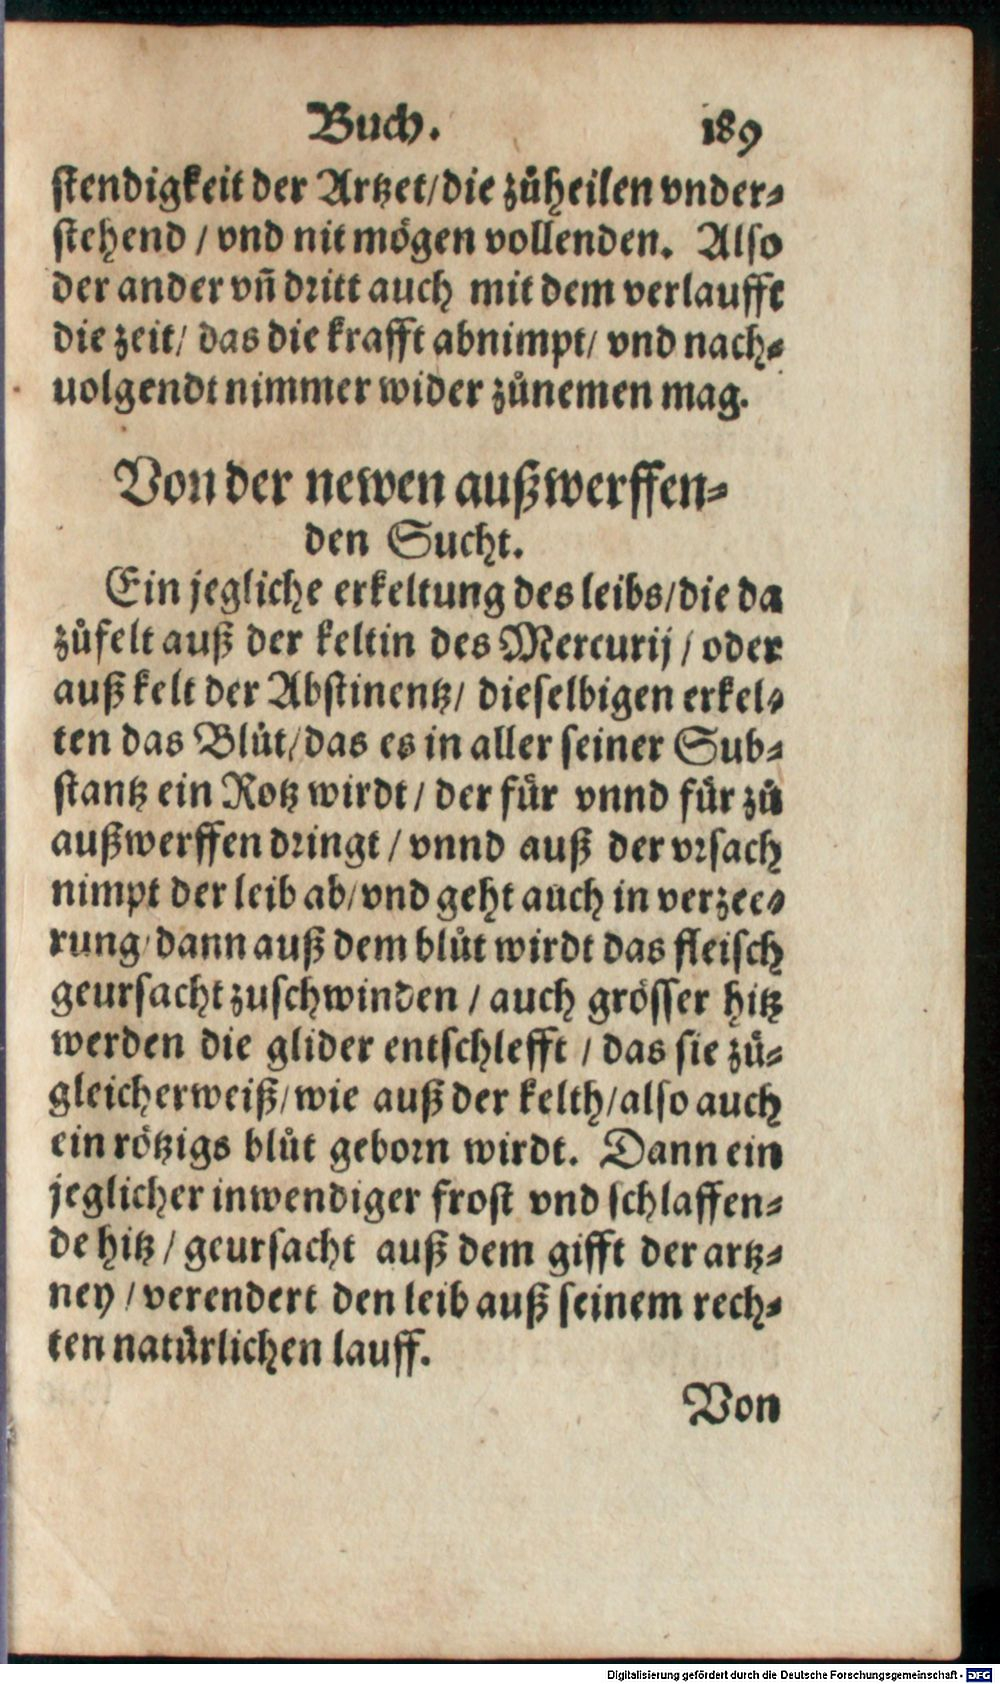 Buch. 189
stendigkeit der Artzet/die zůheilen vnder-
stehend / vnd nit mögen vollenden. Also
der ander vñ dritt auch mit dem verlaufft
die zeit/ das die krafft abnimpt/ vnd nach-
uolgendt nimmer wider zůnemen mag.
Von der newen außwerffen-
den Sucht.
Ein jegliche erkeltung des leibs/die da
zůfelt auß der keltin des Mercurij / oder
auß kelt der Abstinentz/ dieselbigen erkel-
ten das Blůt/das es in aller seiner Sub-
stantz ein Rotz wirdt / der für vnnd für zů
außwerffen dringt / vnnd auß der vrsach
nimpt der leib ab/vnd geht auch in verzee-
rung/dann auß dem blůt wirdt das fleisch
geursacht zuschwinden / auch grösser hitz
werden die glider entschlefft / das sie zů-
gleicherweiß/wie auß der kelth/also auch
ein rötzigs blůt geborn wirdt. Dann ein
jeglicher inwendiger frost vnd schlaffen-
de hitz / geursacht auß dem gifft der artz-
ney / verendert den leib auß seinem rech-
ten natürlichen lauff.
Von
Digitalisierung gefördert durch die Deutsche Forschungsgemeinschaft - DFG